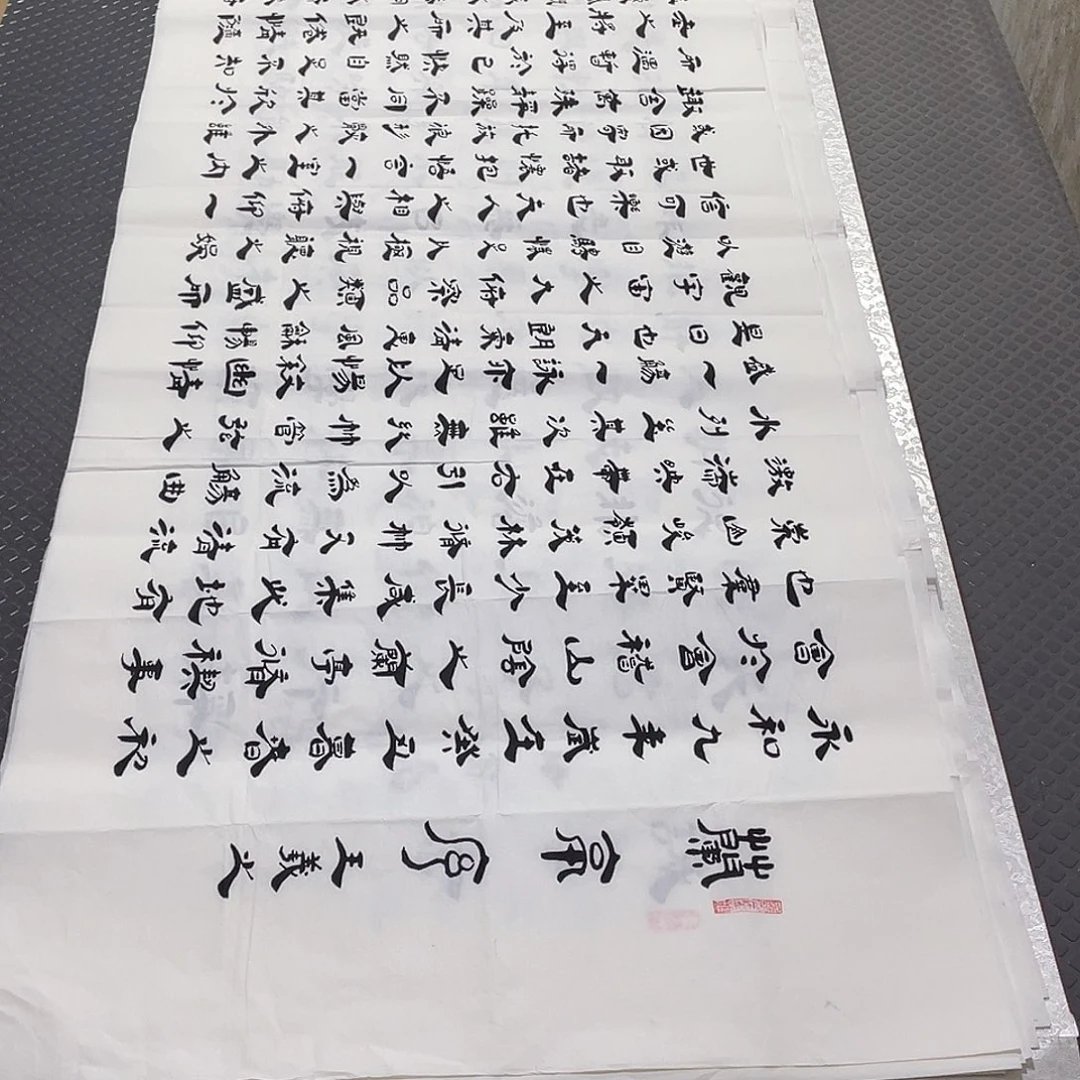 蘭亭序
王羲之
永和九年歲在癸丑暮春之初
會於會稽山陰之蘭亭脩禊事
也羣賢畢至少長咸集此地有
崇山峻領茂林脩竹又有清流
激湍映帶左右引以為流觴曲
水列坐其次雖無絲竹管弦之
盛一觴一詠亦足以暢敘幽情
是日也天朗氣清惠風龢暢仰
觀宇宙之大俯察品類之盛所
以遊目騁懷足以極視聽之娛
信可樂也夫人之相與俯仰一
世或取諸懷抱悟言一室之內
或因寄所託放浪形骸之外雖
趣舍萬殊靜躁不同當其欣於
所遇暫得於己快然自足不知
老之將至及其所之既倦情隨